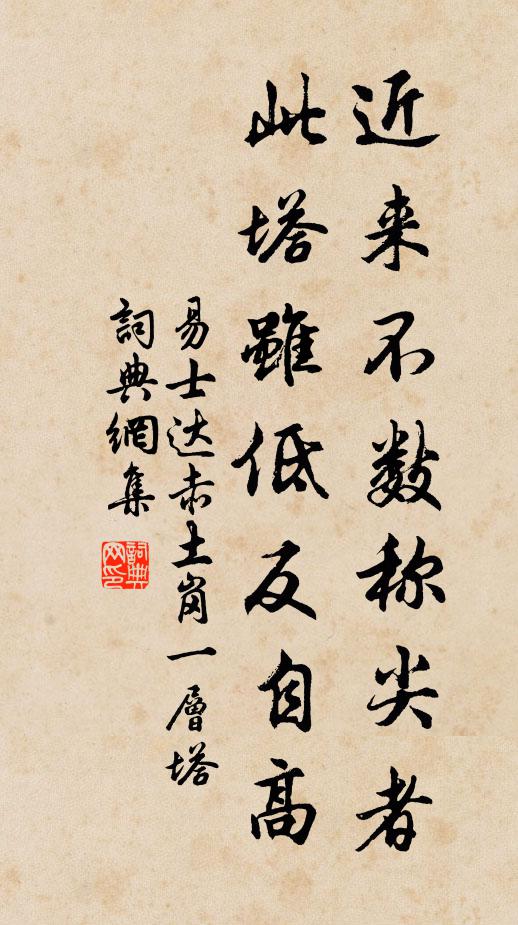 近来不数称尖者
此塔雖低反自高
易士达赤土岗一層塔
詞典網集
詞典網印